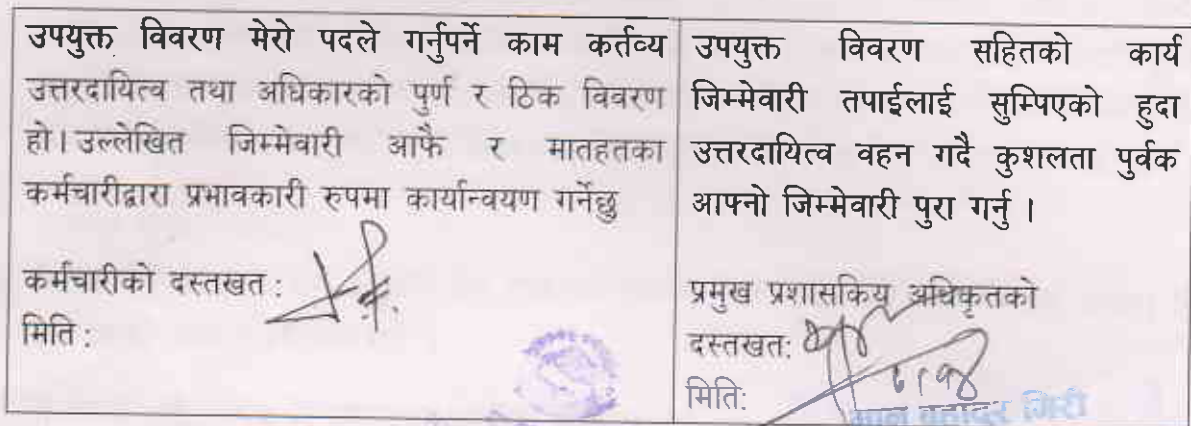 उपयुक्त विवरण मेरो पदले गर्नुपर्ने काम कर्तव्य
उत्तरदायित्व तथा अधिकारको पुर्ण र ठिक विवरण
हो। उल्लेखित जिम्मेवारी आफै र मातहतका
कर्मचारीद्वारा प्रभावकारी रुपमा कार्यान्वयण गर्नेछु
कर्मचारीको दस्तखत:
मिति:
उपयुक्त विवरण सहितको कार्य
जिम्मेवारी तपाईलाई सुम्पिएको हुदा
उत्तरदायित्व वहन गर्दै कुशलता पुर्वक
आफ्नो जिम्मेवारी पुरा गर्नु ।
प्रमुख प्रशासकिय अधिकृतको
दस्तखत:
मिति:
मान बहादुर गिरी